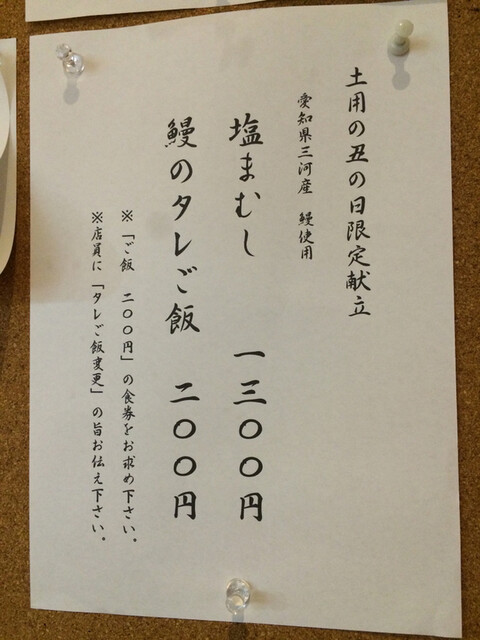 土用の丑の日限定献立
愛知県三河産　鰻使用
塩まむし　一三〇〇円
鰻のタレご飯　二〇〇円
※「ご飯　二〇〇円」の食券をお求め下さい。
※店員に「タレご飯変更」の旨お伝え下さい。